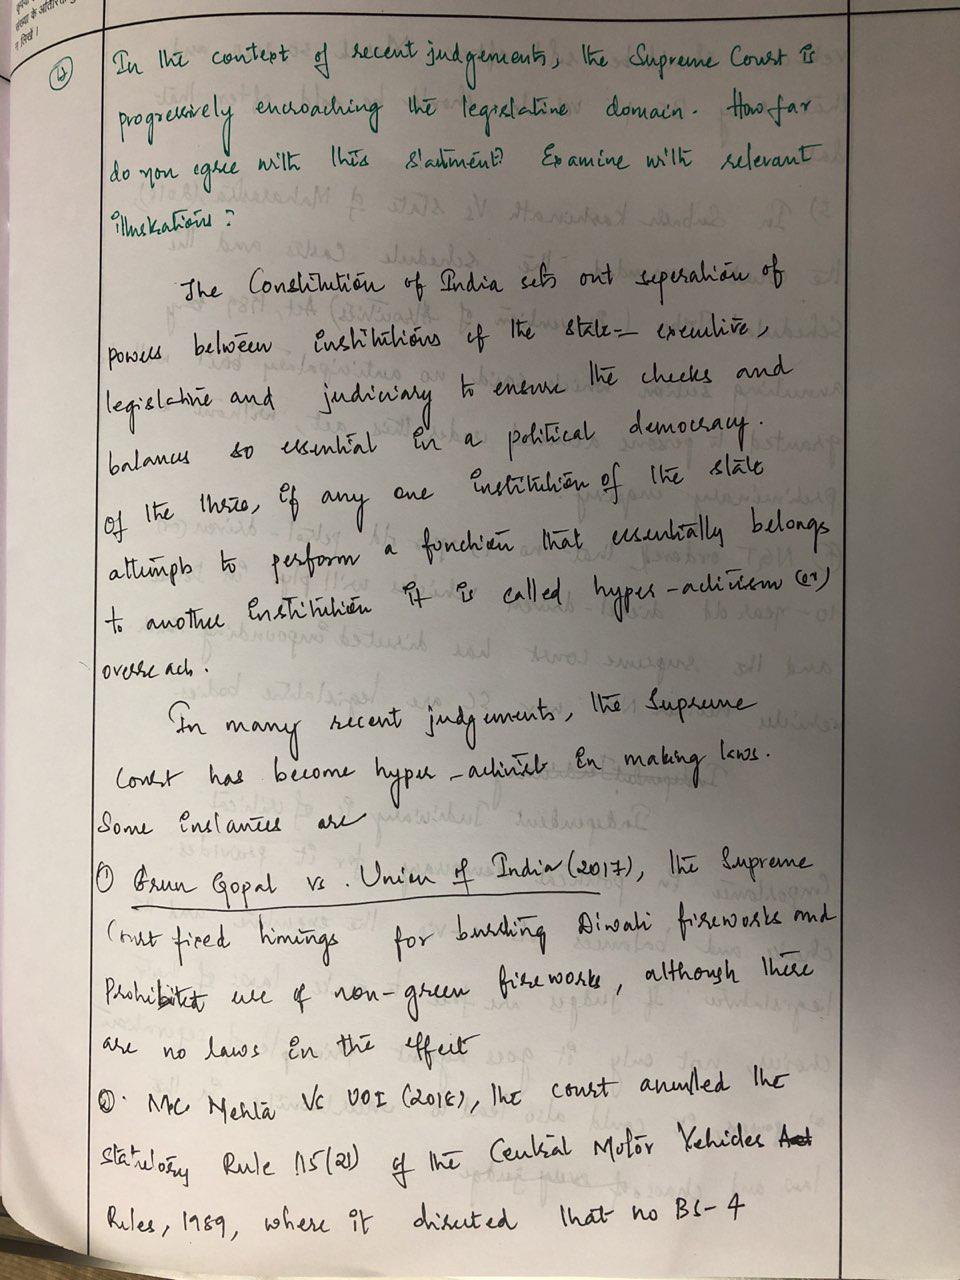 संख्या के अतिरिक्त
न लिखें।
4) In the context of recent judgements, the Supreme Court is
progressively encroaching the legislative domain. How far
do you agree with this statment? Examine with relevant
illustrations?
The Constitution of India sets out seperation of
powers between institutions of the state – executive,
legislative and judiciary to ensure the checks and
balances so essential in a political democracy.
Of the three, if any one institution of the state
attempts to perform a function that essentially belongs
to another institution it is called hyper-activism (or)
overreach.
In many recent judgements, the Supreme
Court has become hyper-activist in making laws.
Some instances are
① Arun Gopal vs. Union of India (2017), the Supreme
Court fixed timings for bursting Diwali fireworks and
Prohibited use of non-green fireworks, although there
are no laws in the effect
②. M.C Mehta Vs UOI (2018), the court annulled the
statutory Rule 115(21) of the Central Motor Vehicles Act
Rules, 1989, where it directed that no BS-4